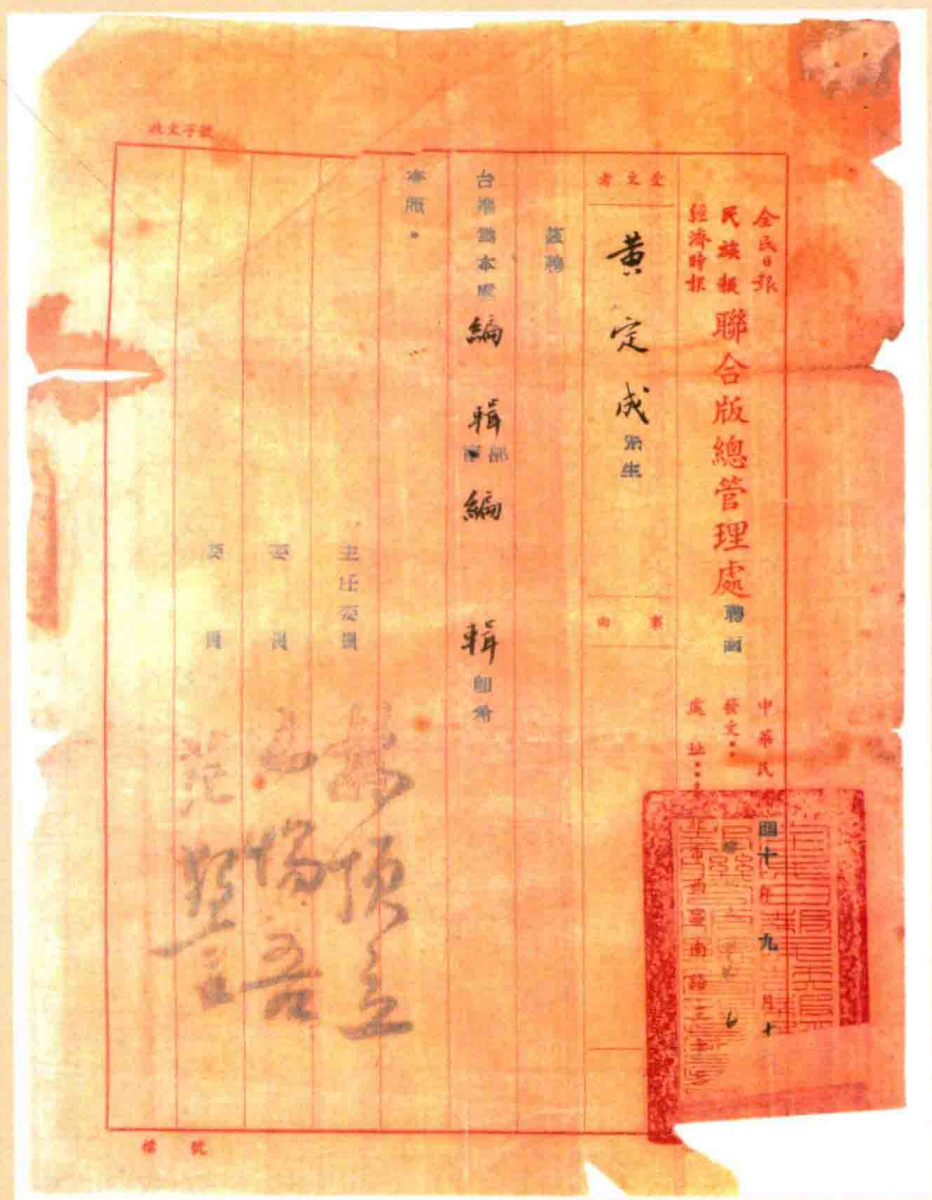 收文字號
全民日報
民族報
經濟時報
聯合版總管理處聘函
中華民國四十年九月十
發文：
處址：
受文者
黃定成先生
案由
茲聘
台端為本處編輯部編輯即希
查照。
主任委員 林頂立
委員 王惕吾
委員 范鶴言
檔號